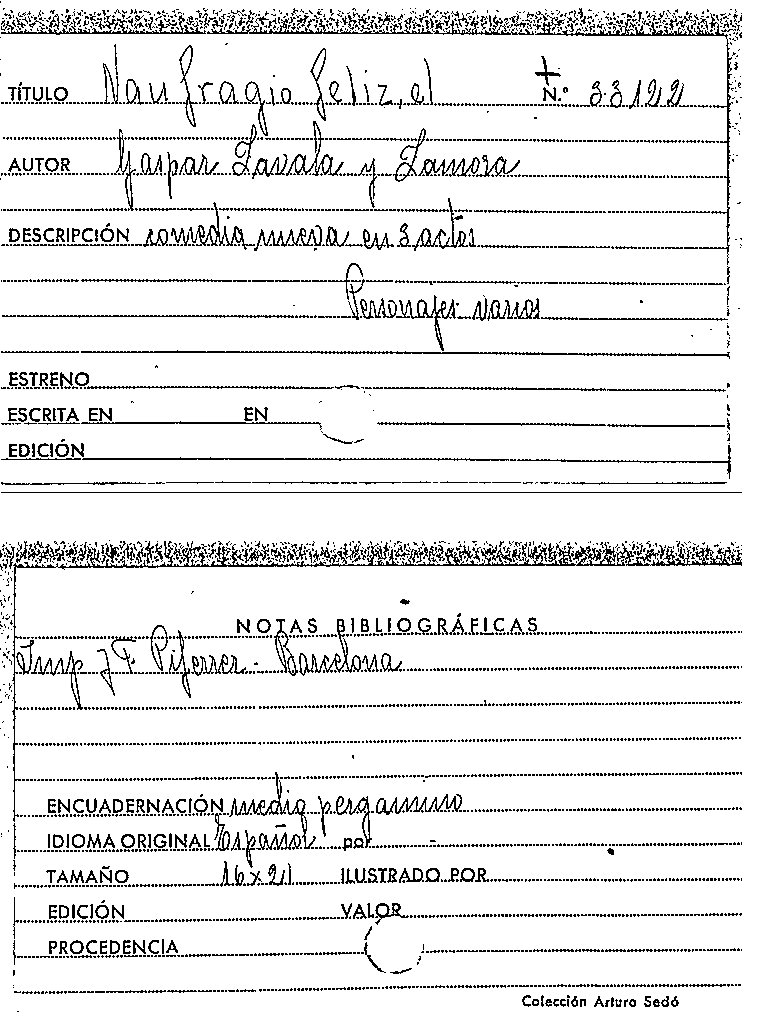 TÍTULO Naufragio feliz, el N.º 33122
AUTOR Gaspar Zavala y Zamora
DESCRIPCIÓN comedia nueva en 3 actos
Personajes varios
ESTRENO
ESCRITA EN EN
EDICIÓN
NOTAS BIBLIOGRÁFICAS
Imp J F Piferrer - Barcelona
ENCUADERNACIÓN media pergamino
IDIOMA ORIGINAL Español por -
TAMAÑO 16x21 ILUSTRADO POR
EDICIÓN VALOR
PROCEDENCIA
Colección Arturo Sedó